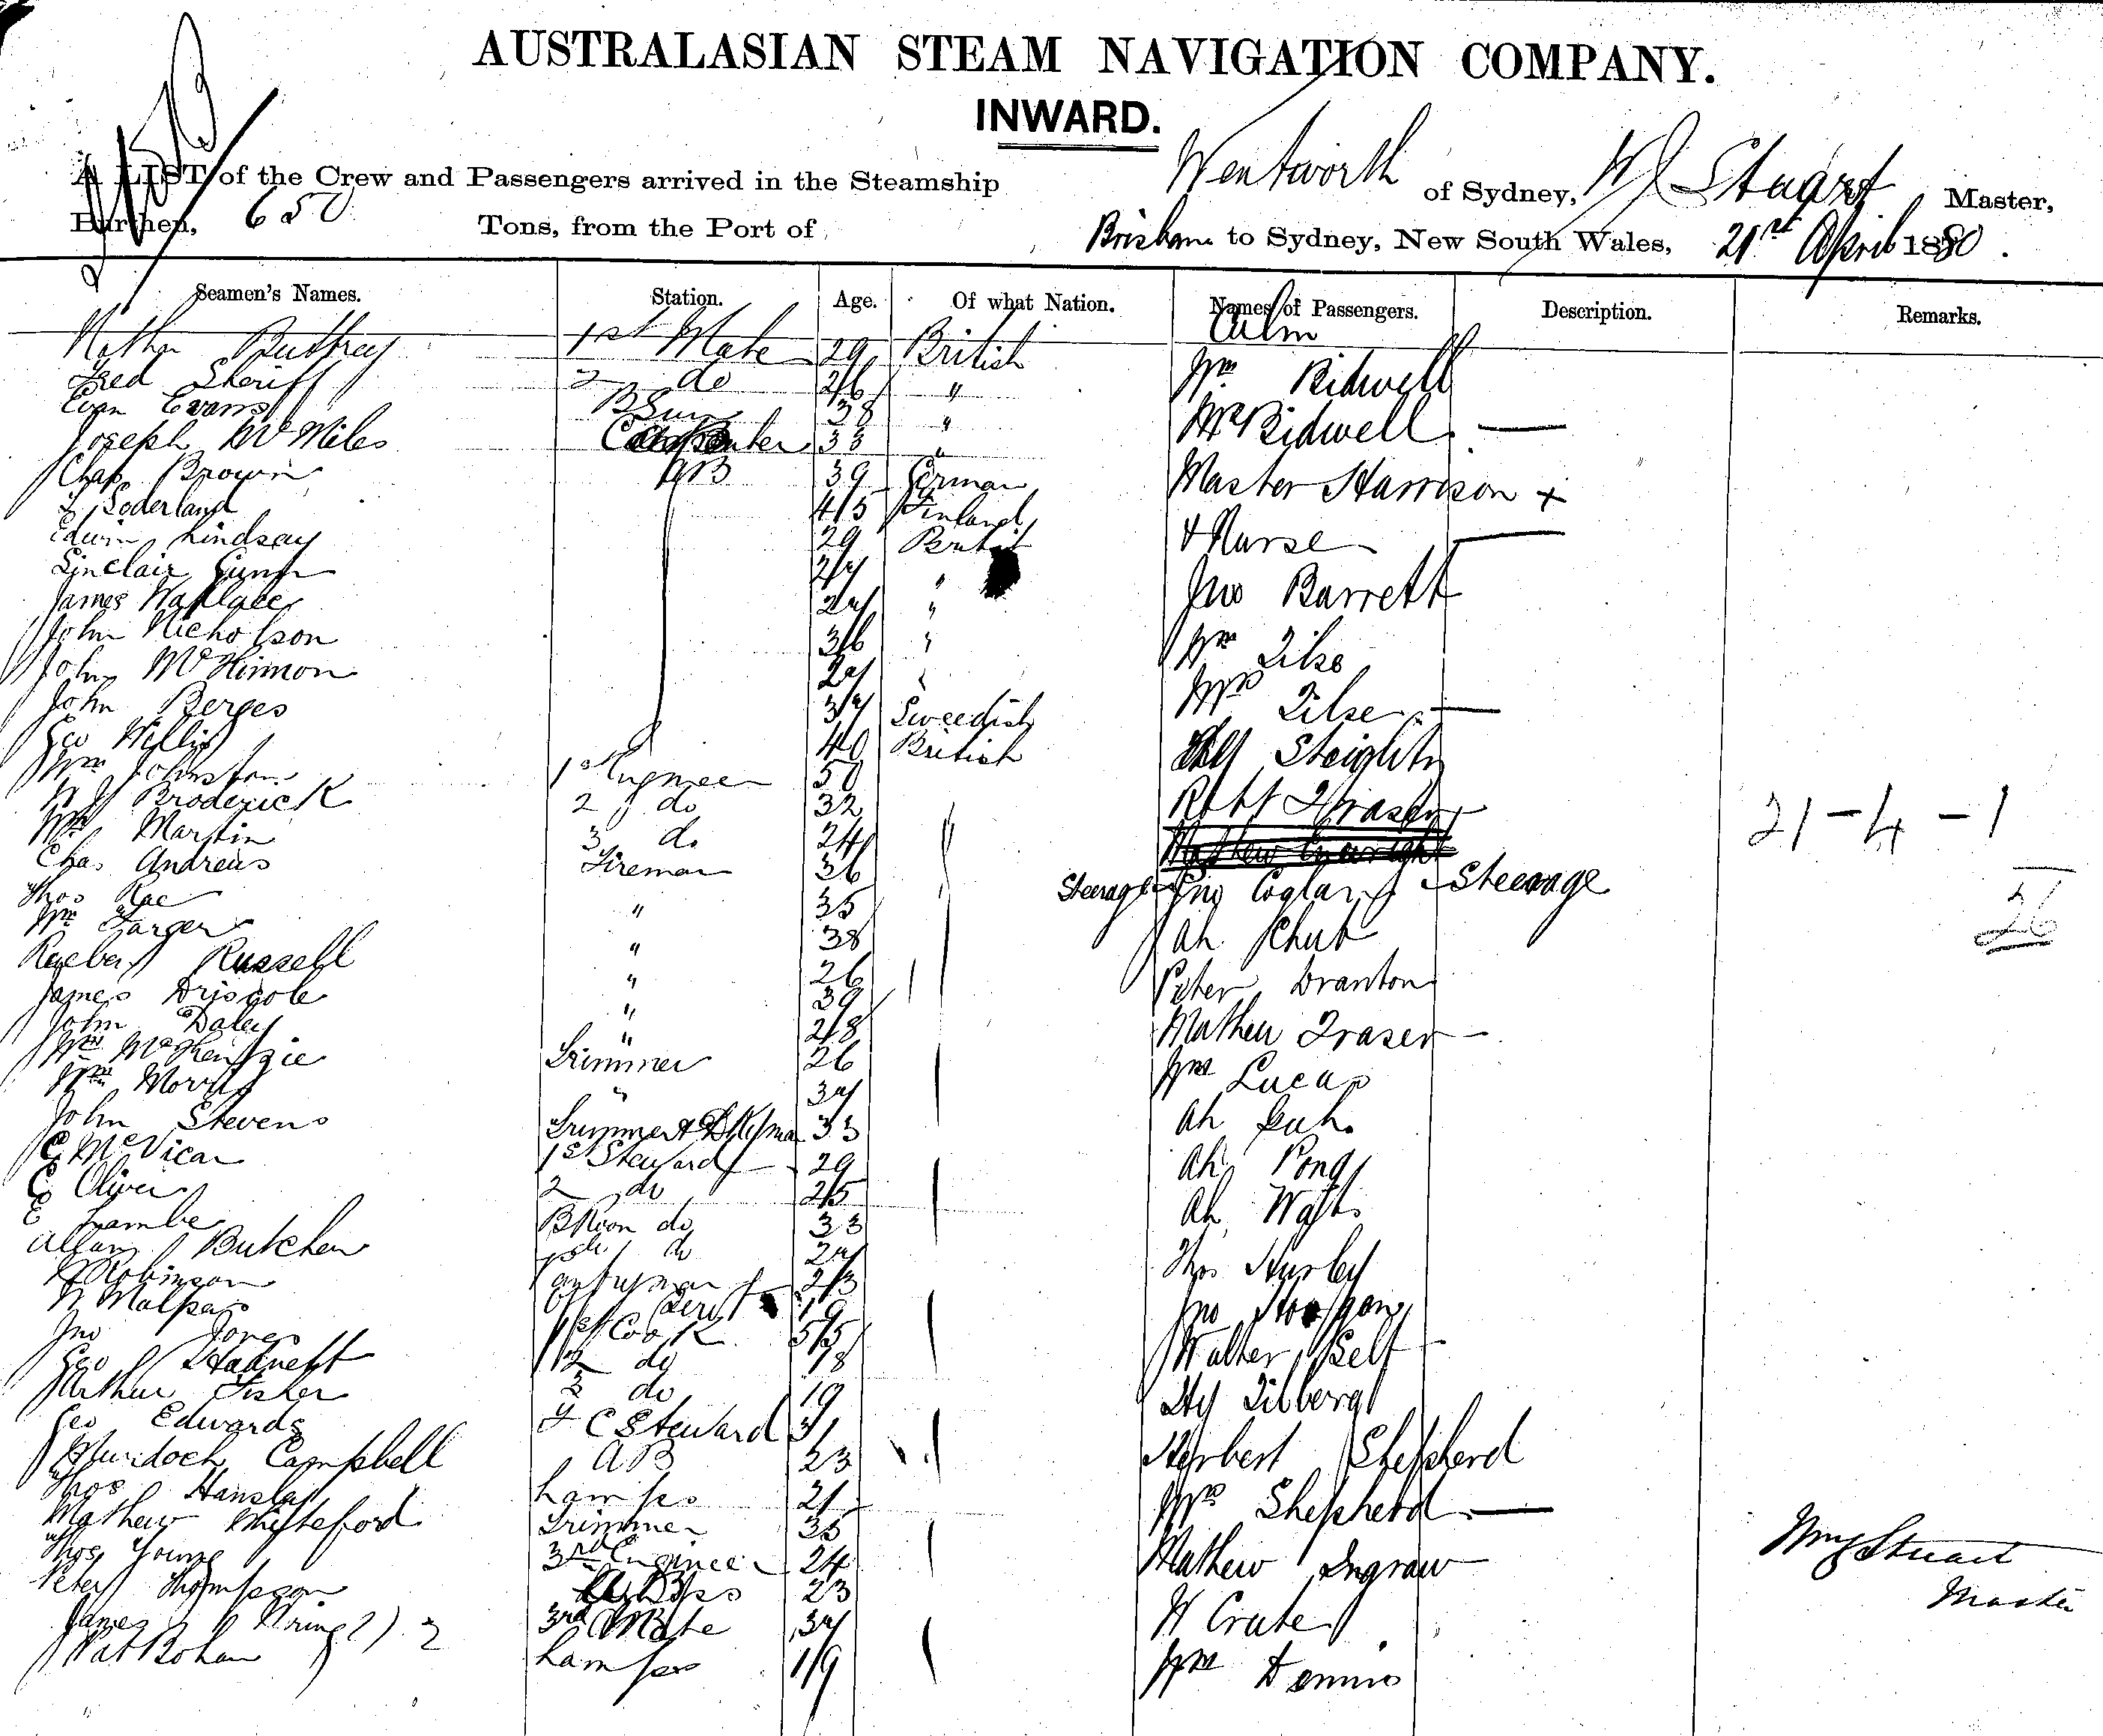 AUSTRALASIAN STEAM NAVIGATION COMPANY.
INWARD.
A LIST of the Crew and Passengers arrived in the Steamship Wentworth of Sydney, Stuart Master,
Burthen, 650 Tons, from the Port of Brisbane to Sydney, New South Wales, 21st April 1880.
Seamen's Names. Station. Age. Of what Nation. Names of Passengers. Description. Remarks.
Cabin
1st Mate 29 British Wm Bidwell
Fred Sheriff 2 do 26 " Mrs Bidwell —
Evan Evans 38 "
Joseph McMiles Carpenter 33 "
Chas Brown AB 39 German Master Harrison +
Soderland 45 Finland
Edwin Lindsay 29 British & Nurse —
Sinclair Gunn 27 "
James Wallace 27 " Jno Barrett
John Nicholson 36 "
John McKinnon 27 " Wm Tilse
John Berges 37 Sweedish Mrs Tilse —
Geo Willis 40 British Steights
Wm Johnston 1st Engineer 50
Broderick 2 do 32 Robt Fraser
Wm Martin 3 do 24
Chas Andreas Fireman 36 Steerage Jno Coglan Steerage
21-4-1
26
Thos Rae " 35
Wm Farger " 38 Ah Chut
Russell " 26 Peter Branton
James Driscole " 39
John Daley " 28 Mathew Fraser
Wm McKenzie Trimmer 26
Wm Morris " 37 Wm Lucas
John Stevens Trimmer & 33 Ah
C McVicar 1st Steward 29 Ah Pong
C Oliver 2 do 25 Ah
E Lambe do 33
Allan Butcher do 27 Thos Hurley
Robinson Pantryman 23
N Malpas 19 Jno
Jno Jones 1st Cook 55 Walter Self
Geo 2 do 18
Arthur Fisher 3 do 19 Hy Tilberg
Geo Edwards F C Steward 31
Murdoch Campbell AB 23 Herbert Shepherd
Thos Lamps 21 Mrs Shepherd —
Mathew Whiteford Trimmer 35
Thos Young 3rd Engineer 24 Mathew Ingram
Peter Thompson 23
James 3rd Mate 37 W Crute
Pat Bohan Lamps 19 Wm Dennis
Wm Stuart
Master